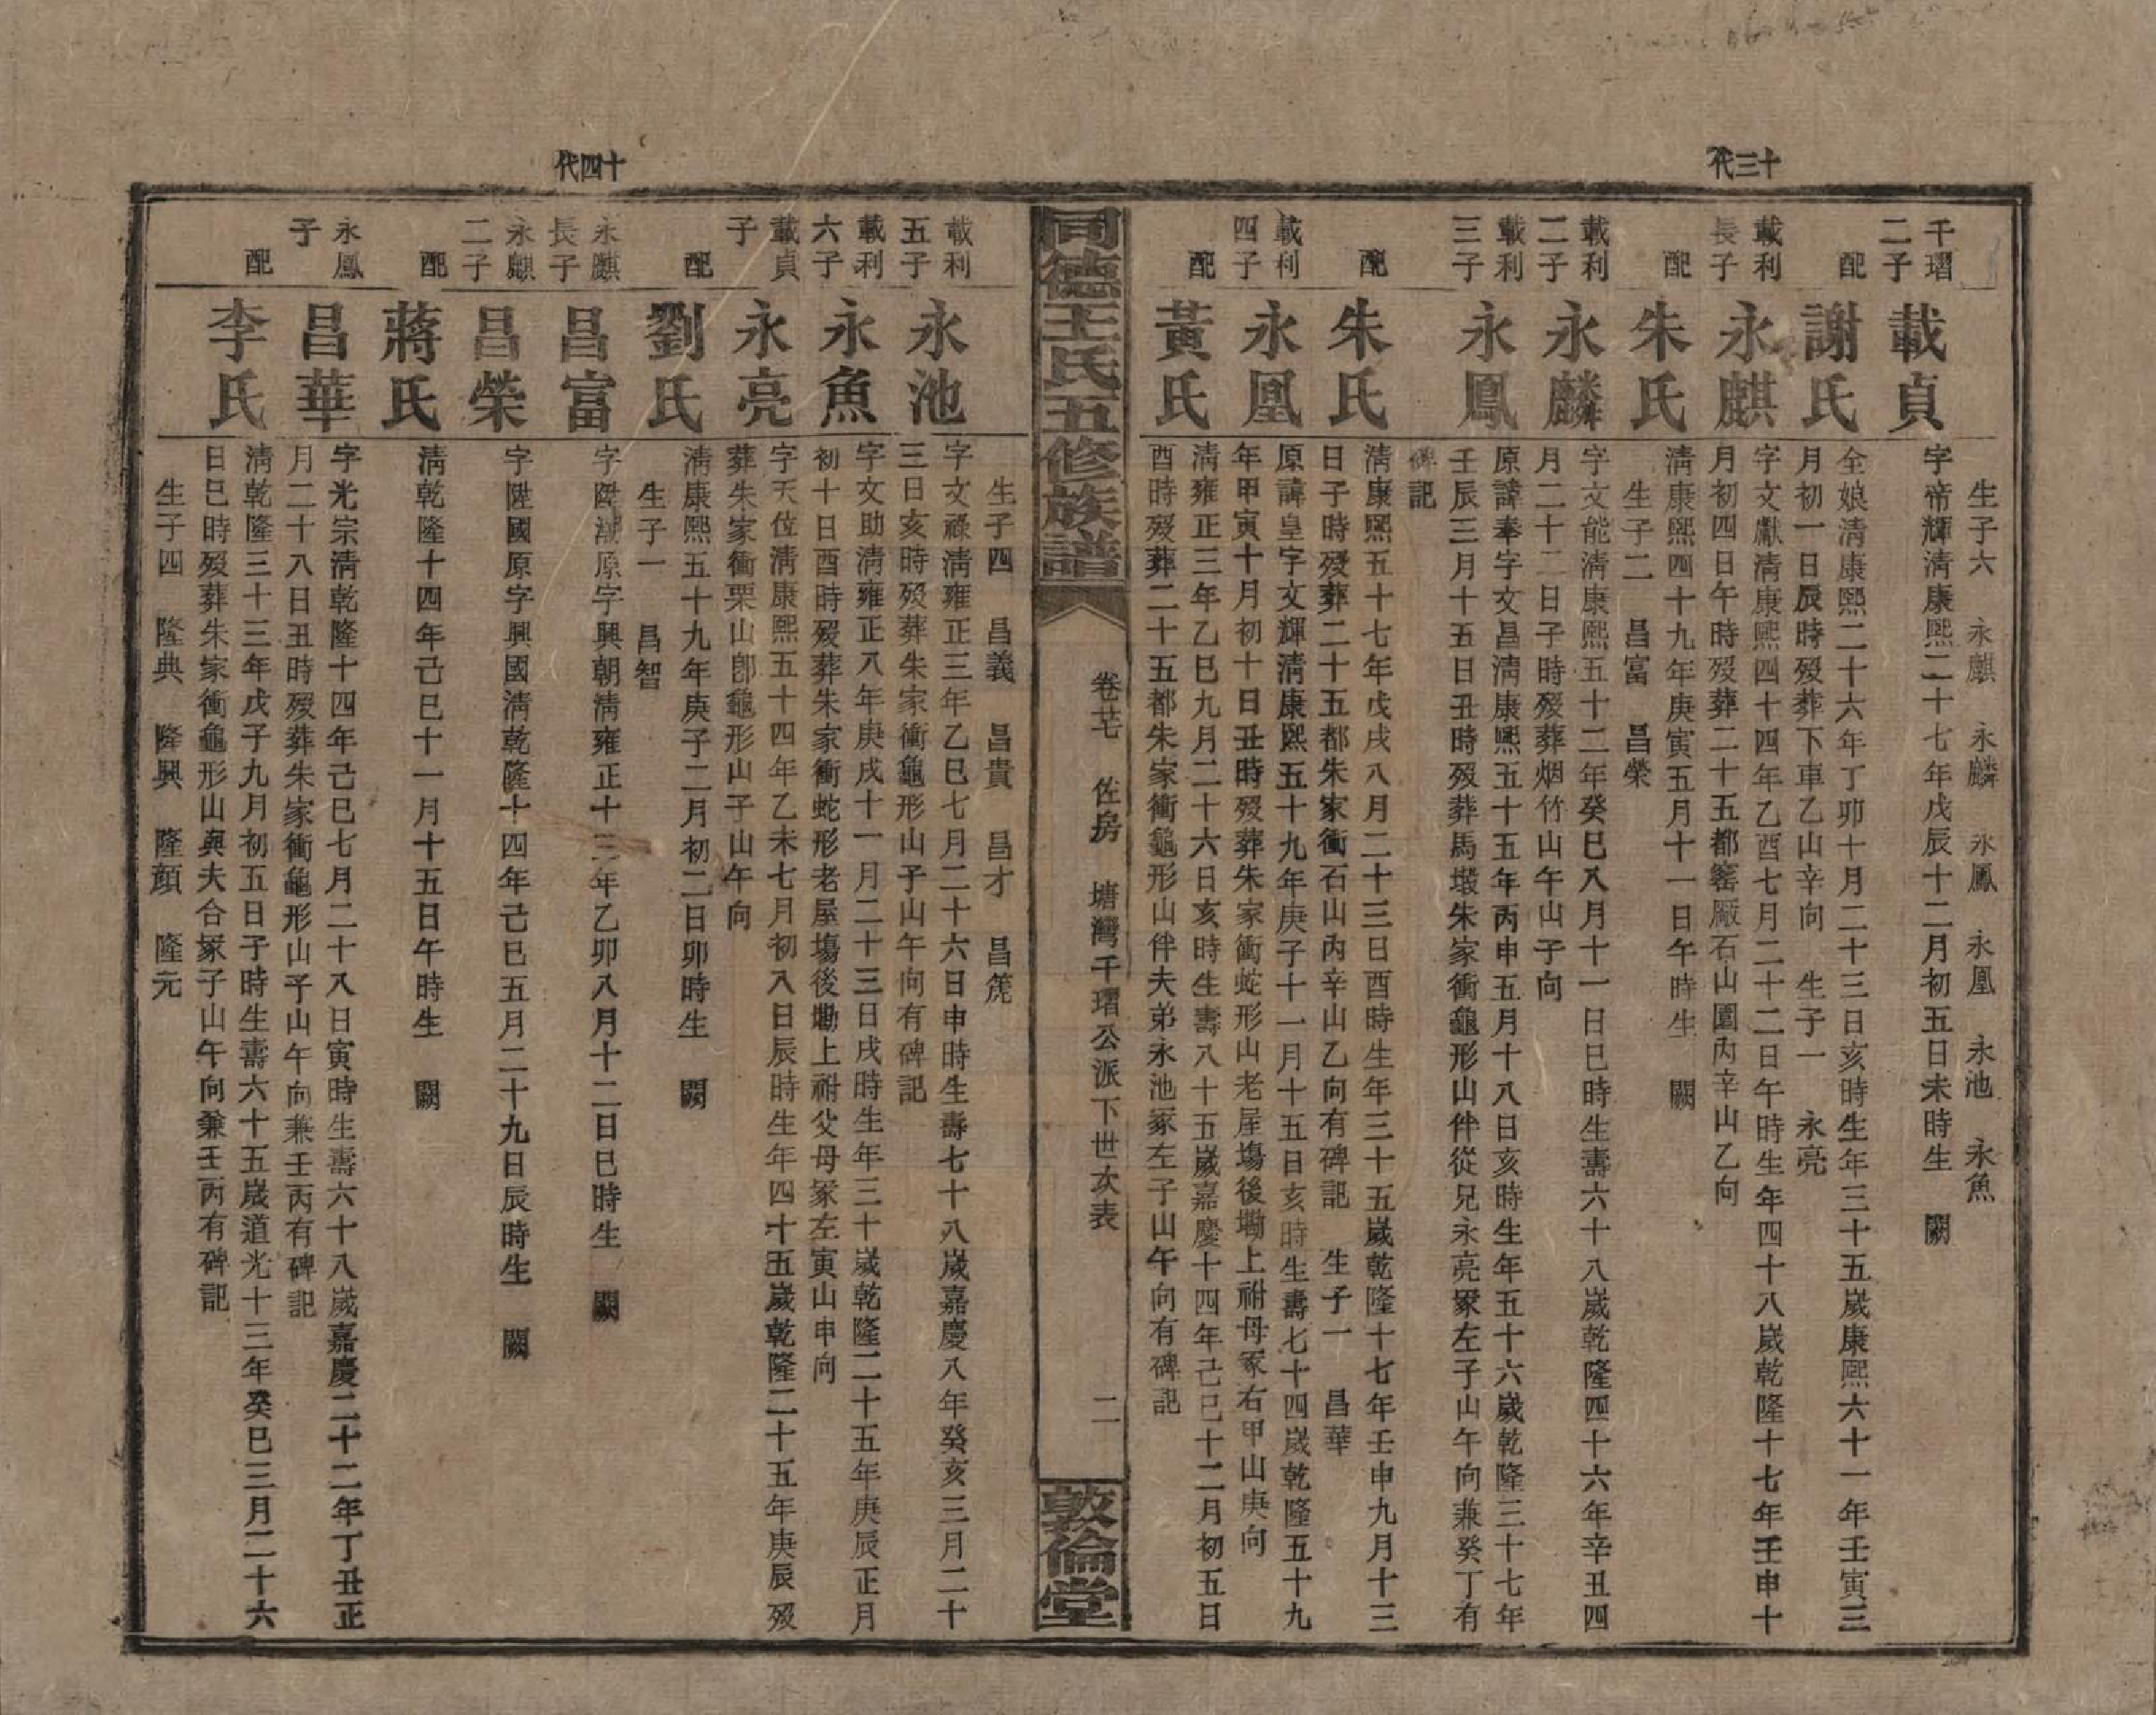 十三代
生子六　永麒　永麟　永鳳　永凰　永池　永魚
千瑁二子
載貞
字帝輝清康熙二十七年戊辰十二月初五日未時生　闕
配
謝氏
全娘清康熙二十六年丁卯十月二十三日亥時生年三十五歲康熙六十一年壬寅三
月初一日辰時歿葬下車乙山辛向　生子一　永亮
載利長子
永麒
字文獻清康熙四十四年乙酉七月二十二日午時生年四十八歲乾隆十七年壬申十
月初四日午時歿葬二十五都窰厰石山圍丙辛山乙向
配
朱氏
清康熙四十九年庚寅五月十一日午時生　闕
生子二　昌富　昌榮
載利二子
永麟
字文能清康熙五十二年癸巳八月十一日巳時生壽六十八歲乾隆四十六年辛丑四
月二十二日子時歿葬烟竹山午山子向
載利三子
永鳳
原諱奉字文昌清康熙五十五年丙申五月十八日亥時生年五十六歲乾隆三十七年
壬辰三月十五日丑時歿葬馬塅朱家衝龜形山伴從兄永亮冢左子山午向兼癸丁有
碑記
配
朱氏
清康熙五十七年戊戌八月二十三日酉時生年三十五歲乾隆十七年壬申九月十三
日子時歿葬二十五都朱家衝石山丙辛山乙向有碑記　生子一　昌華
載利四子
永凰
原諱皇字文輝清康熙五十九年庚子十一月十五日亥時生壽七十四歲乾隆五十九
年甲寅十月初十日丑時歿葬朱家衝蛇形山老屋塲後墈上祔母冢右甲山庚向
配
黃氏
清雍正三年乙巳九月二十六日亥時生壽八十五歲嘉慶十四年己巳十二月初五日
酉時歿葬二十五都朱家衝龜形山伴夫弟永池冢左子山午向有碑記
同德王氏五修族譜
卷廿　佐房　塘灣千瑁公派下世次表
二
敦倫堂
生子四　昌義　昌貴　昌才　昌箎
載利五子
永池
字文祿清雍正三年乙巳七月二十六日申時生壽七十八歲嘉慶八年癸亥三月二十
三日亥時歿葬朱家衝龜形山子山午向有碑記
載利六子
永魚
字文助清雍正八年庚戌十一月二十三日戌時生年三十歲乾隆二十五年庚辰正月
初十日酉時歿葬朱家衝蛇形老屋塲後墈上祔父母冢左寅山申向
載貞子
永亮
字天位清康熙五十四年乙未七月初八日辰時生年四十五歲乾隆二十五年庚辰歿
葬朱家衝栗山卽龜形山子山午向
配
劉氏
清康熙五十九年庚子二月初二日卯時生　闕
生子一　昌智
十四代
永麒長子
昌富
字陞潮原字興朝清雍正十三年乙卯八月十二日巳時生　闕
永麒二子
昌榮
字陞國原字興國清乾隆十四年己巳五月二十九日辰時生　闕
配
蔣氏
清乾隆十四年己巳十一月十五日午時生　闕
永鳳子
昌華
字光宗清乾隆十四年己巳七月二十八日寅時生壽六十八歲嘉慶二十二年丁丑正
月二十八日丑時歿葬朱家衝龜形山子山午向兼壬丙有碑記
配
李氏
清乾隆三十三年戊子九月初五日子時生壽六十五歲道光十三年癸巳三月二十六
日巳時歿葬朱家衝龜形山與夫合冢子山午向兼壬丙有碑記
生子四　隆典　隆興　隆顔　隆元